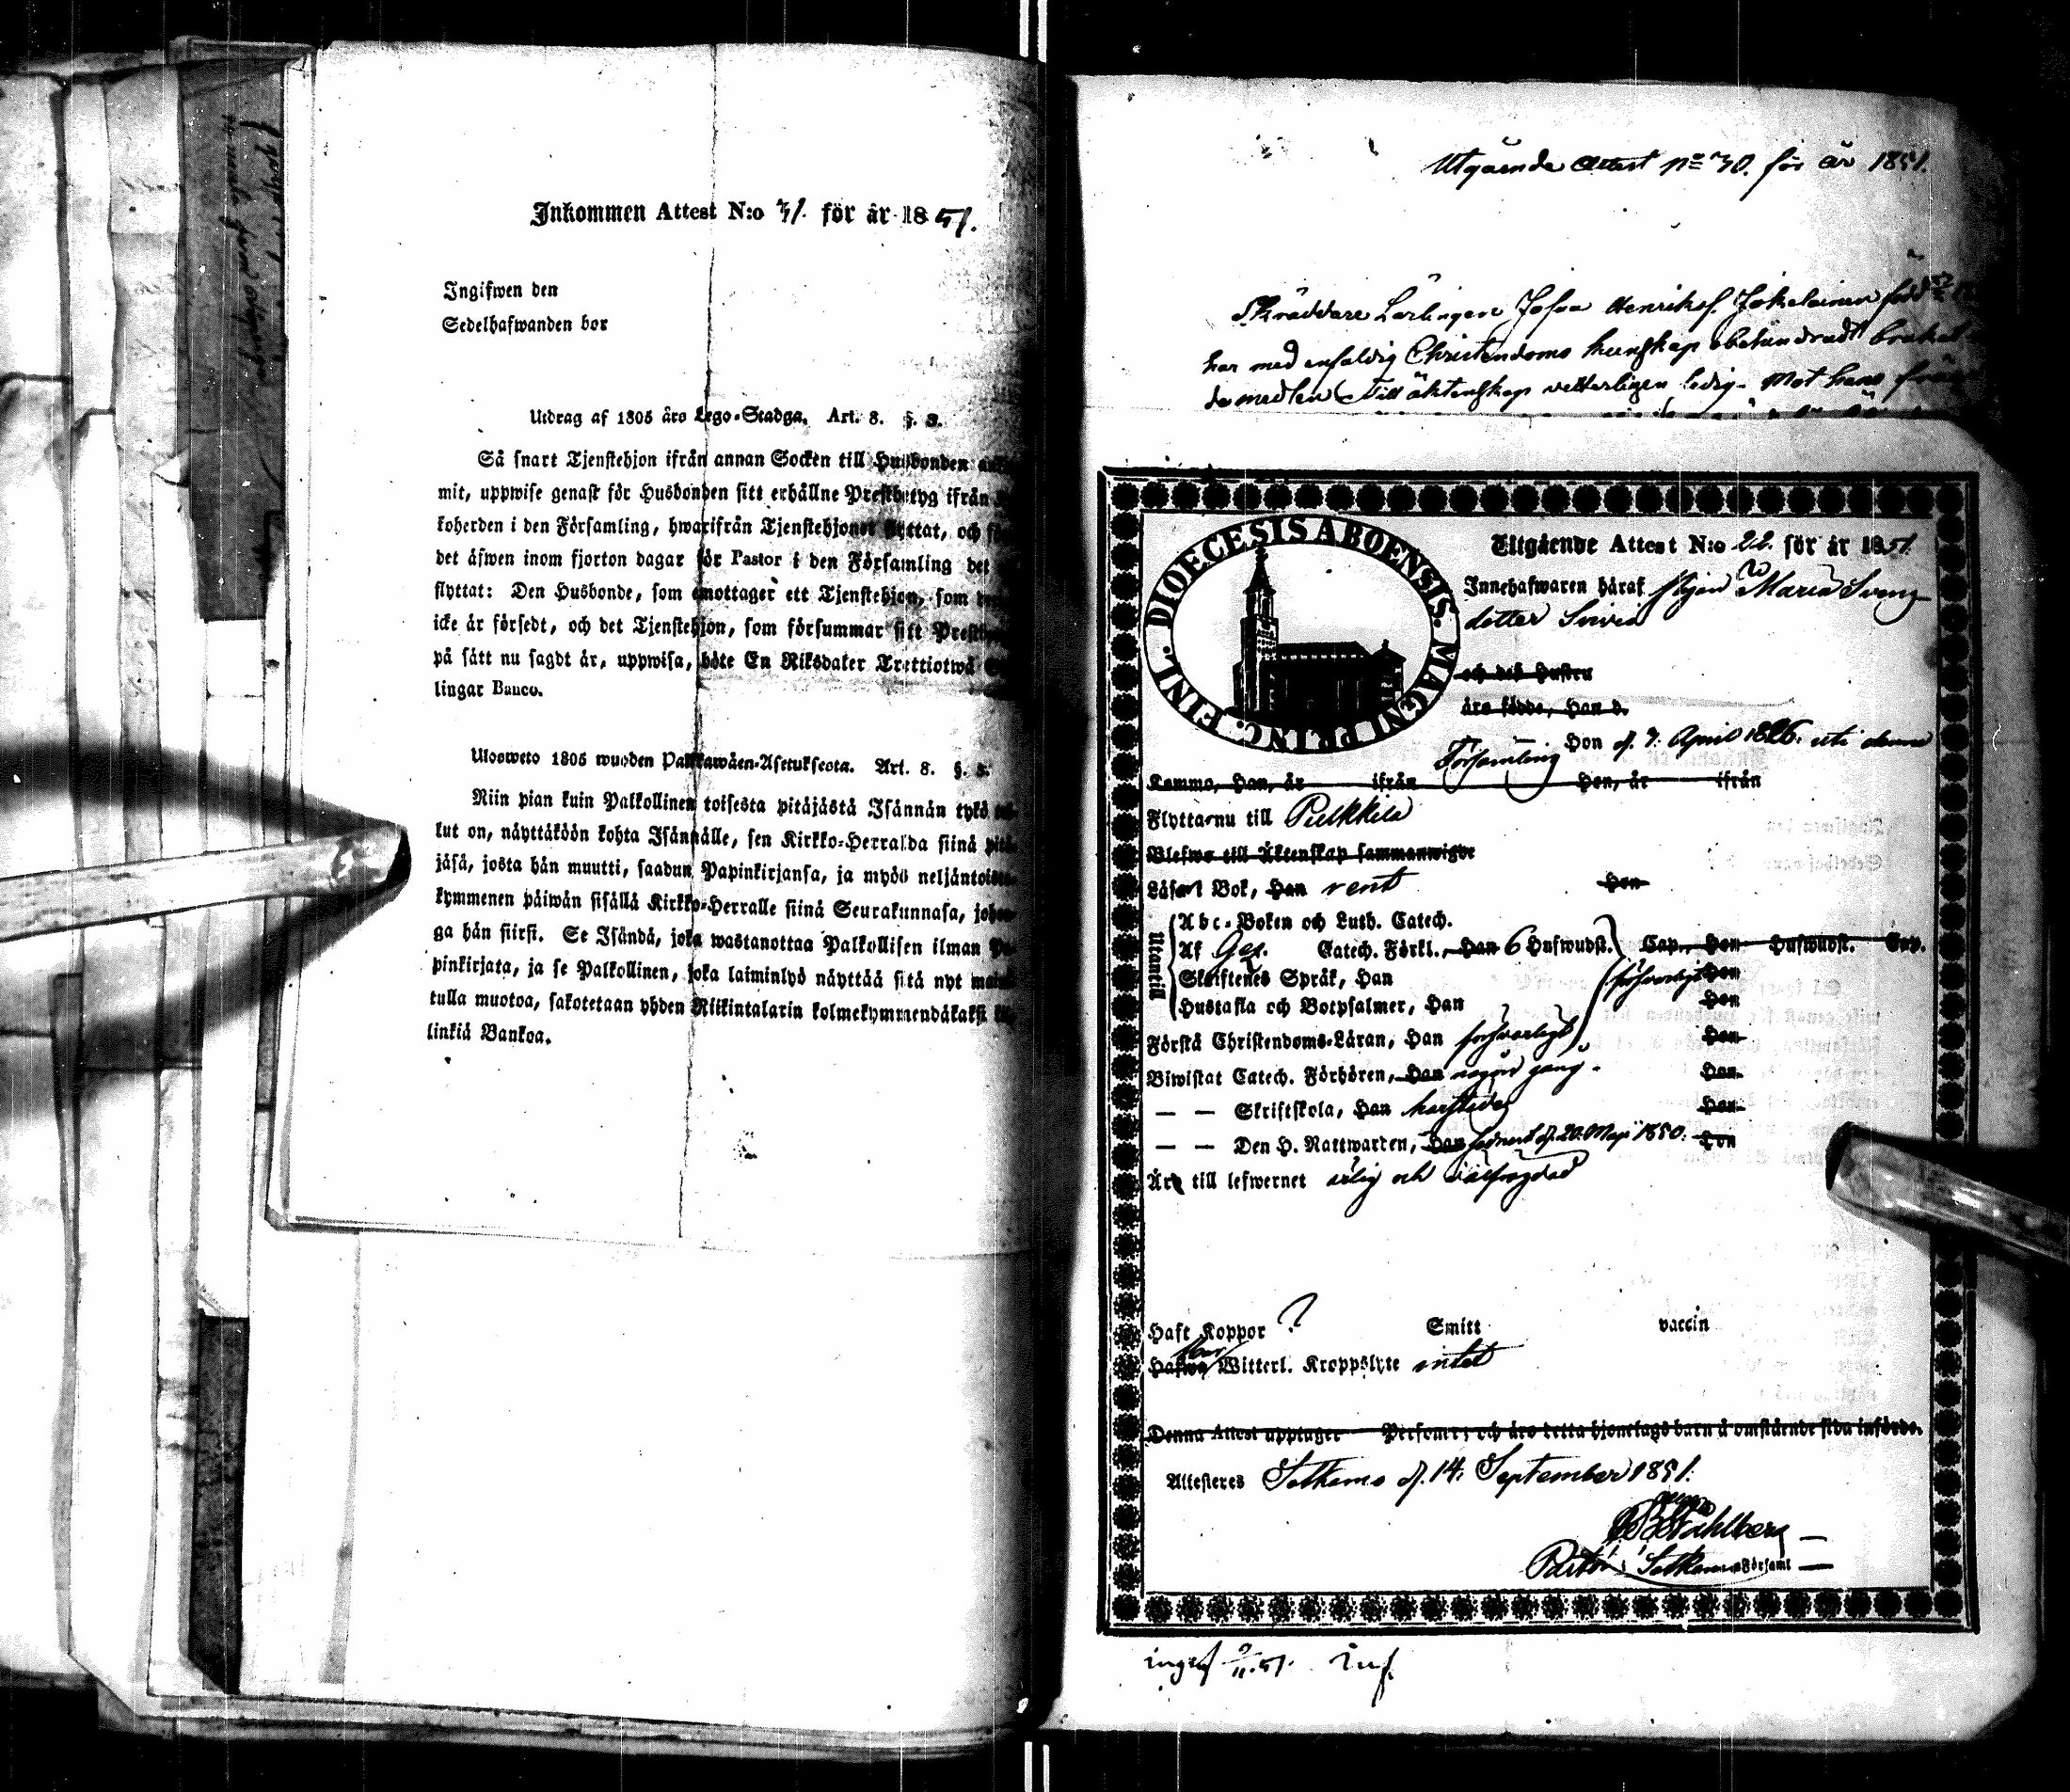 Inkommen Attest N:o 31. för år 1851.
Ingifwen den
Sedelhafwanden bor
Utdrag af 1805 års Lego-Stadga. Art. 8. §. 3.
Så snart Tjenstehjon ifrån annan Socken till Husbonden
mit, uppwise genast för Husbonden sitt erhållne Prestbetyg ifrån
koherden i den Församling, hwarifrån Tjenstehjonet flyttat, och
det äfwen inom fjorton dagar för Pastor i den Församling det
flyttat: Den Husbonde, som emottager ett Tjenstehjon, som
icke är försedt, och det Tjenstehjon, som försummar sitt
på sätt nu sagdt är, uppwisa, böte En Riksdaler Trettiotwå
lingar Banco.
Ulosweto 1805 wuoden Palkkawäen-Asetuksesta. Art. 8. §. 3.
Niin pian kuin Palkollinen toisesta pitäjästä Isännän tykö
lut on, näyttäköön kohta Isännälle, sen Kirkko-Herralda siinä
jäsä, josta hän muutti, saadun Papinkirjansa, ja myös neljäntoista-
kymmenen päiwän sisällä Kirkko-Herralle siinä Seurakunnasa,
ga hän siirsi. Se Isändä, joka wastanottaa Palkollisen ilman Pa-
pinkirjata, ja se Palkollinen, joka laiminlyö näyttää sitä nyt
tulla muotoa, sakotetaan yhden Riikintalarin kolmekymmendäkaksi
linkiä Bankoa.
Utgående Attest No 30. för år 1851.
Skräddare Lärlingen Johan Henriks. Jokelainen född
har med enfaldig Christendoms kunskap obehindradt brukat
da medlen Till äktenskap vetterligen ledig. Mot hans
DIOECESIS ABOENSIS. MAGNI PRINC. FINL.
Utgående Attest N:o 22. för år 1851.
Innehafwaren häraf Pigan Maria Svens
dotter
och dess Hustru
äro födde, Han d.
Hon d. 7. April 1826. uti denna
Församling
Komme, Han, år ifrån Hon, år ifrån
Flyttar nu till Pulkkila
Blefwe till Äktenskap sammanwigde
Läser i Bok, Han rent Hon
Utantill
Abc-Boken och Luth. Catech.
Af Catech. Förkl., Han 6 Hufwudst. Cap., Hon Hufwudst. Cap.
Skriftenes Språk, Han försvarligt Hon
Hustafla och Botpsalmer, Han Hon
Förstå Christendoms-Läran, Han försvarligt Hon
Biwistat Catech. Förhören, Han någon gång. Hon
— — Skriftskola, Han Hon
— — Den H. Nattwarden, Han sednast d. 20. Maji 1850. Hon
Äro till lefwernet ärlig och välfrägdad
Haft Koppor ? Smitt vaccin
Hafwa Har Witterl. Kroppslyte intet
Denna Attest upptager Personer; och äro detta hjonelags barn å omstående sida införde.
Attesteres Sotkamo d. 14. September 1851.
Wahlberg
Pastor i Sotkamo Församl
ingaf 9/11.51. Inf.